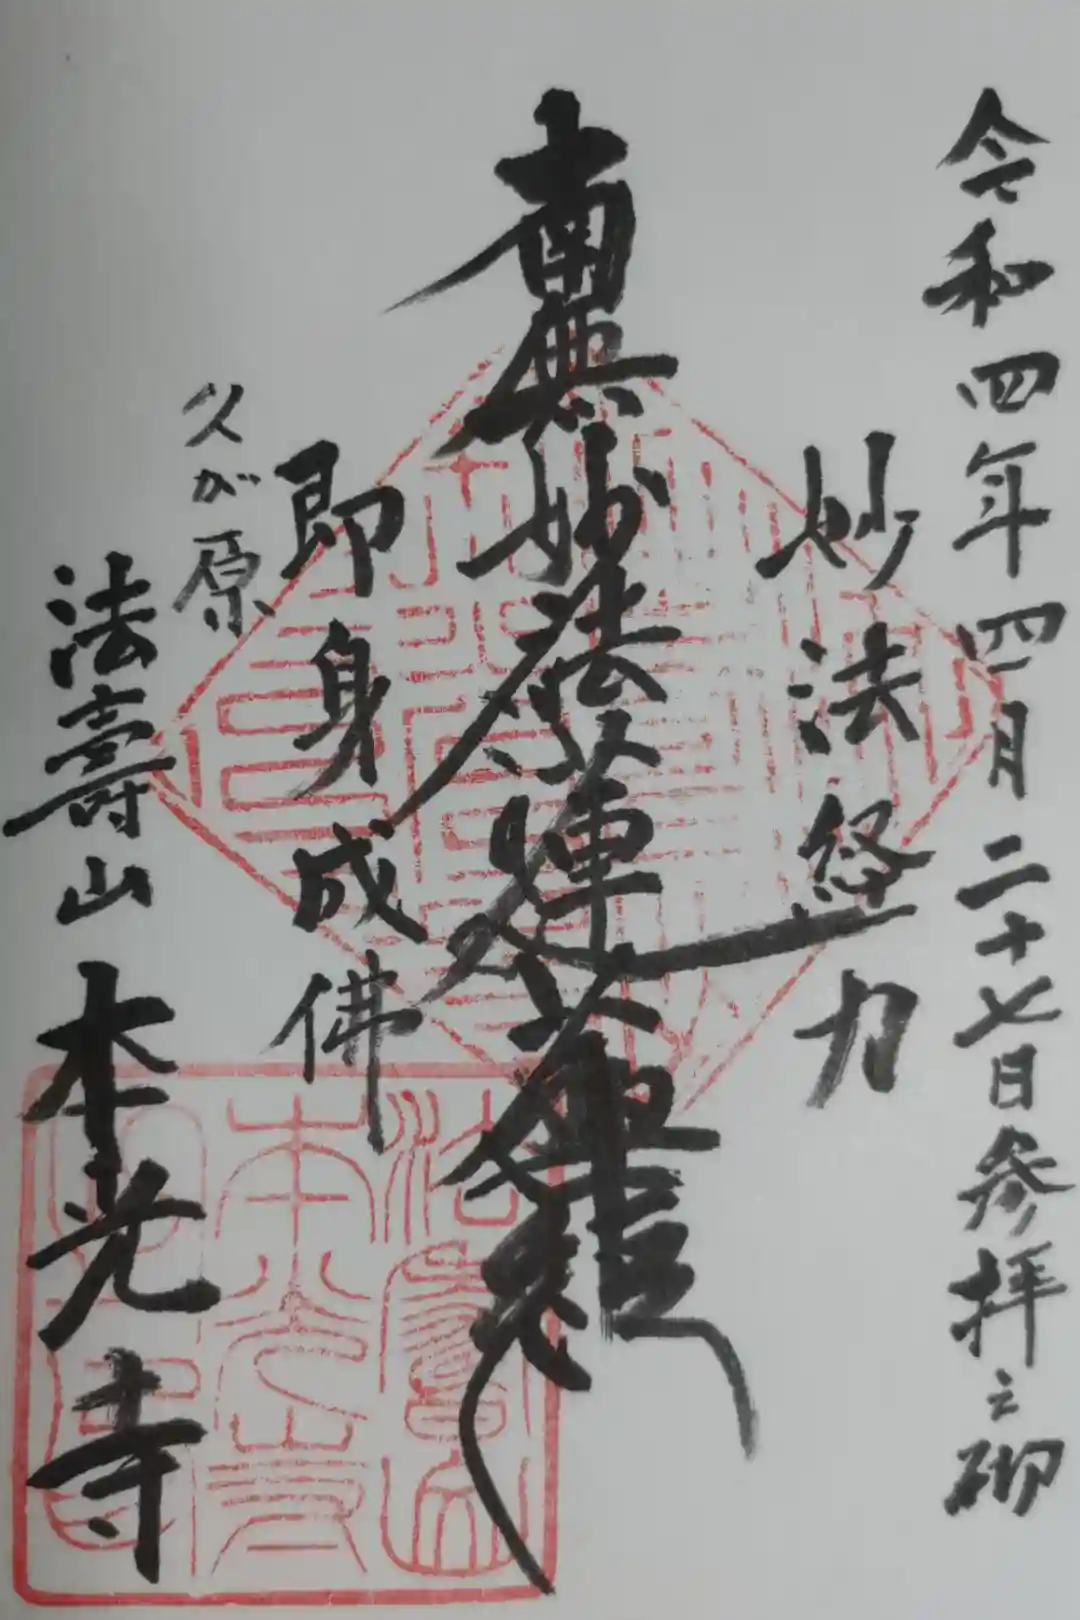 令和四年四月二十七日参拝之砌
妙法経力
南無妙法蓮華経
即身成佛
久が原
法壽山本光寺